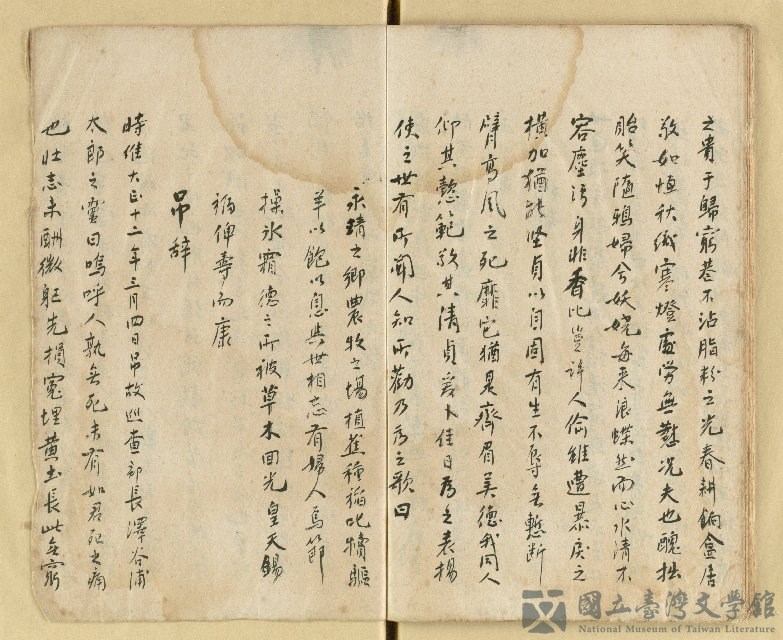 之貴于歸窮巷不沾脂粉之光春耕餉盒居
敬如恆秋織寒燈處勞無懟況夫也醜拙
貽笑隨鴉婦兮妖嬈每來浪蝶然而心水清不
容塵污身非香比豈許人偷雖遭暴戾之
橫加猶能坚貞以自固有生不辱無慙斷
臂高風之死靡它猶是齊眉美德我同人
仰其懿範欽其清貞爰卜佳日為之表揚
使之世有所聞人知所勸乃為之歌曰
永靖之鄉農牧之場植蕉種稻叱犢驅
羊以飽以息與世相忘有婦人焉節
操冰霜德之所被草木回光皇天錫
福俾壽而康
吊辞
時維大正十二年三月四日吊故巡查部長澤谷浦
太郎之靈曰嗚呼人孰無死未有如君死之痛
也壯志未酬微躯先損冤埋黄土長此無窮
國立臺灣文學館
National Museum of Taiwan Literature